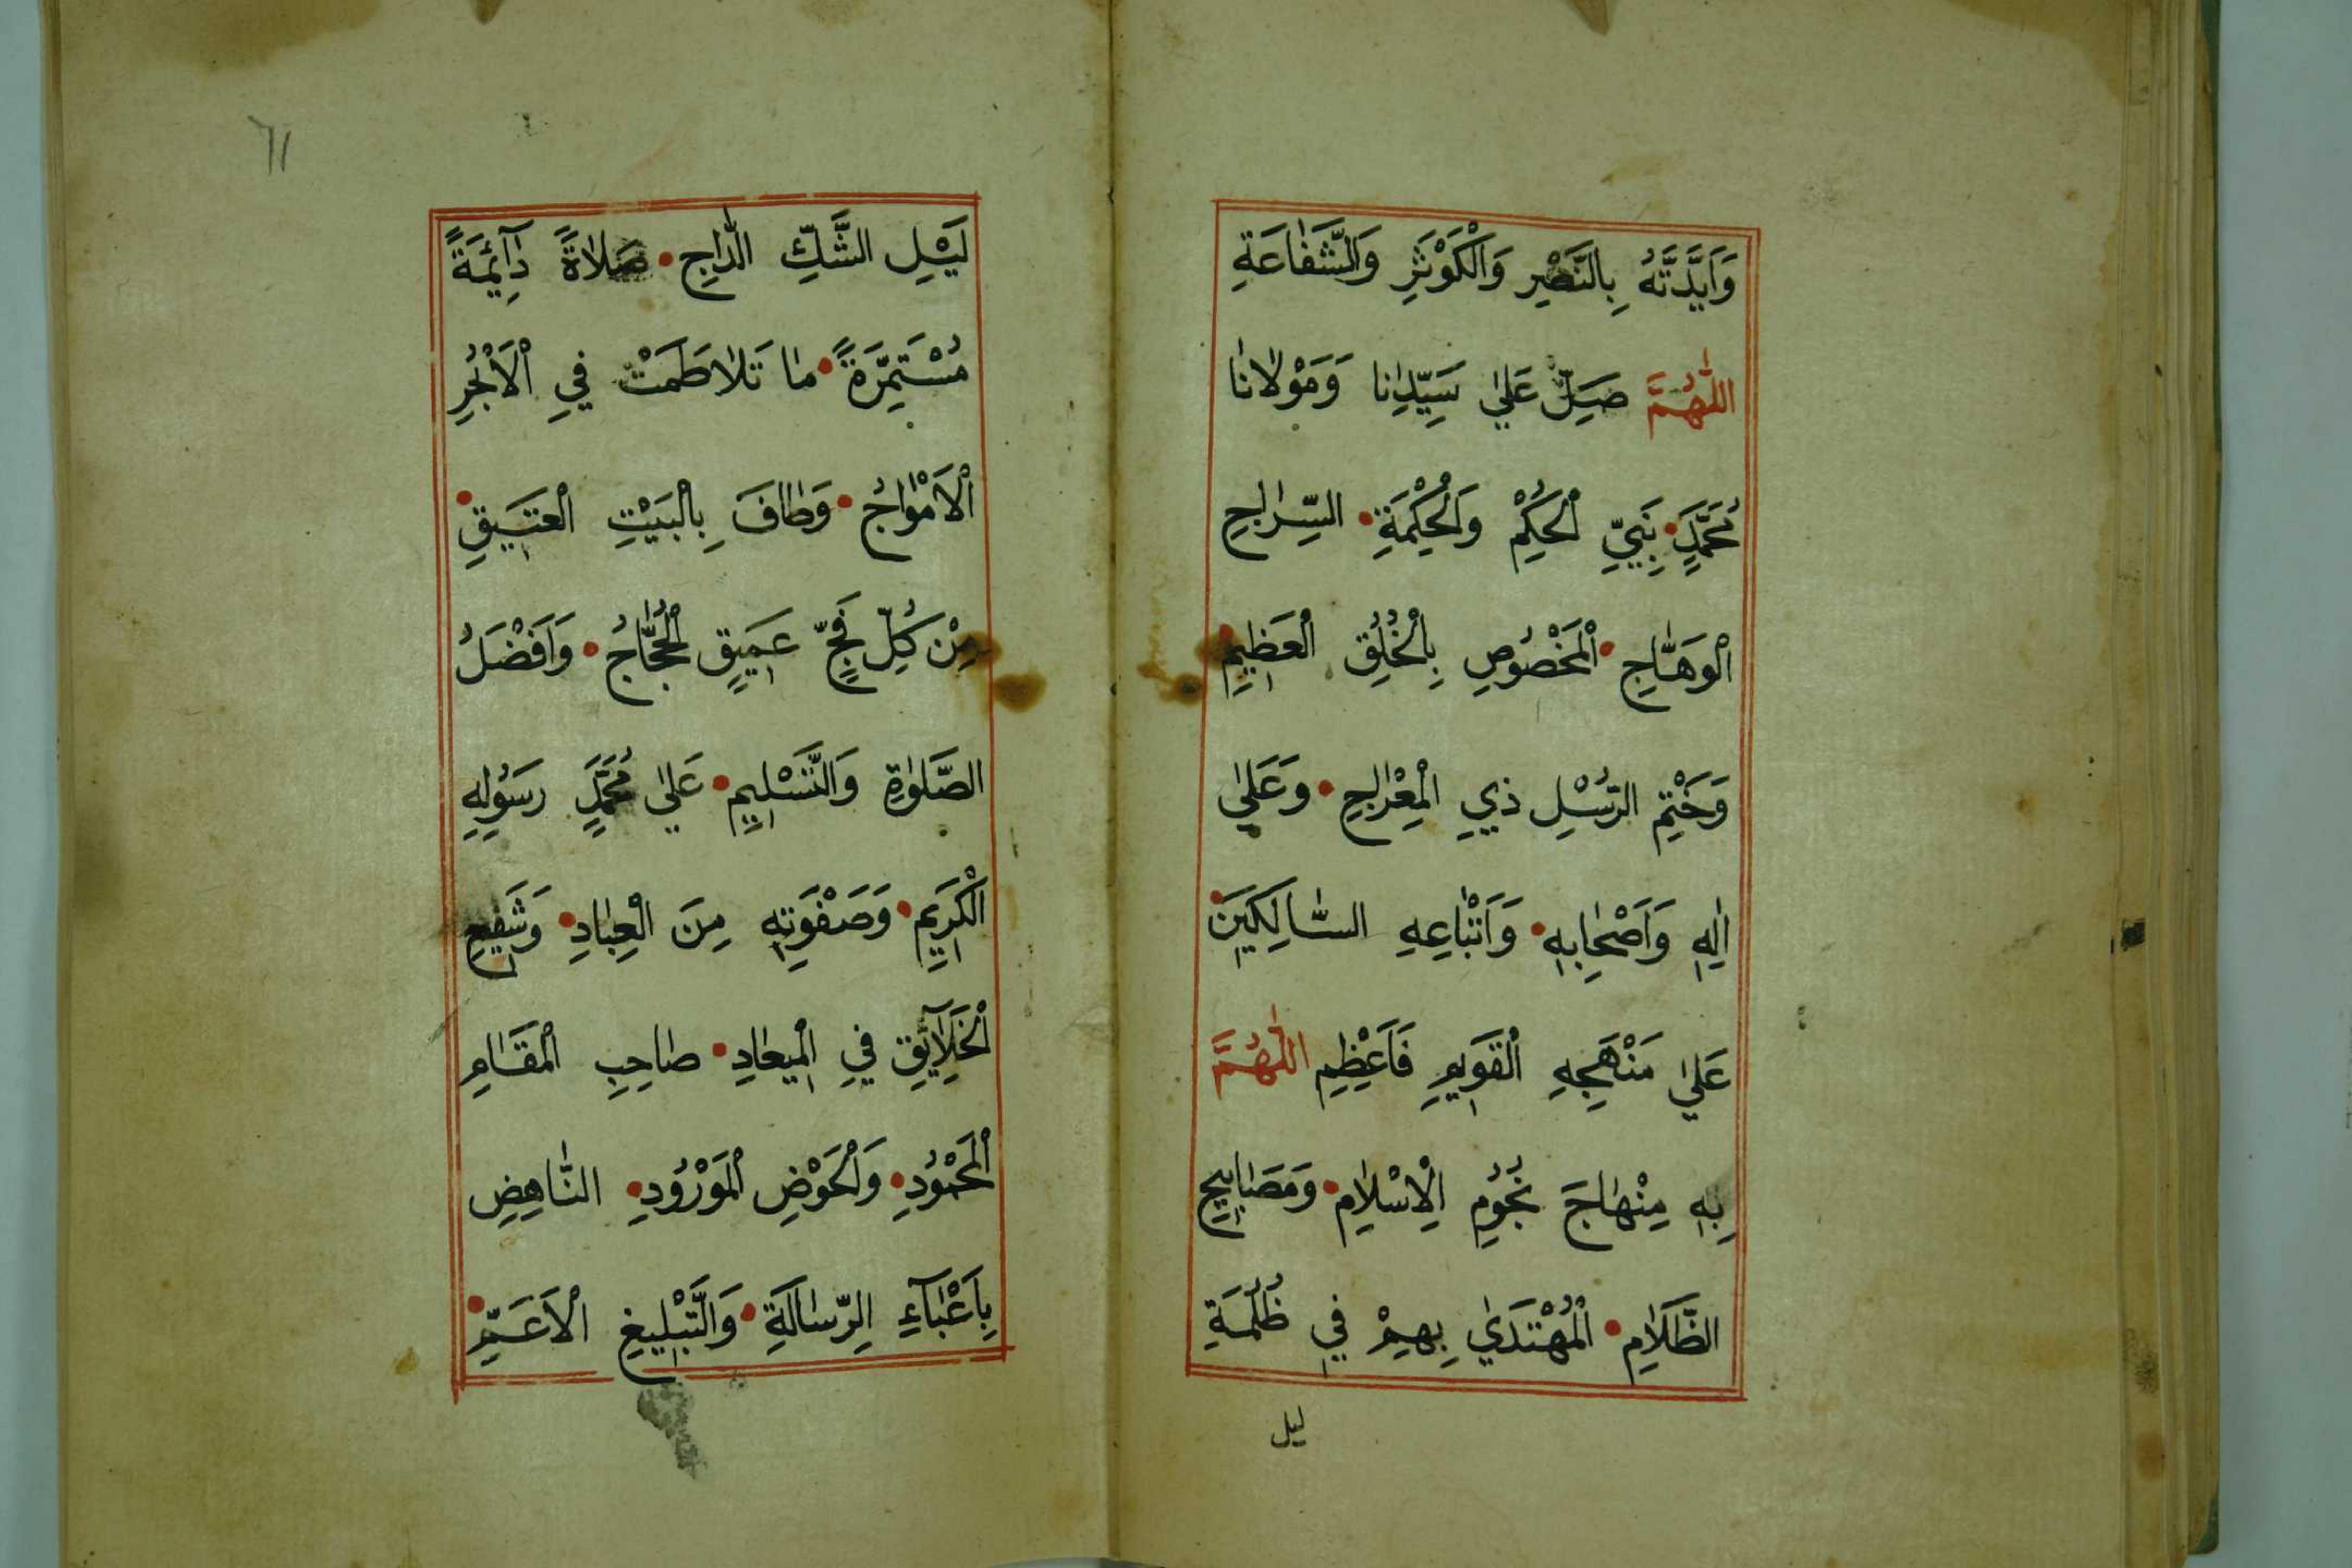 وَاَيَّدْتَهُ بِالنَّصْرِ وَالْكَوْثَرِ وَالشَّفَاعَةِ
اَللّٰهُمَّ صَلِّ عَلٰى سَيِّدِنَا وَمَوْلَانَا
مُحَمَّدٍ • نَبِيِّ الْحُكْمِ وَالْحِكْمَةِ • السِّرَاجِ
الْوَهَّاجِ • الْمَخْصُوصِ بِالْخُلُقِ الْعَظِيمِ •
وَخَتْمِ الرُّسْلِ ذِي الْمِعْرَاجِ • وَعَلٰى
اٰلِهِ وَاَصْحَابِهِ • وَاَتْبَاعِهِ السَّالِكِينَ •
عَلٰى مَنْهَجِهِ الْقَوِيمِ فَاَعْظِمِ اللّٰهُمَّ
بِهِ مِنْهَاجَ نُجُومِ الْاِسْلَامِ • وَمَصَابِيحِ
الظَّلَامِ • الْمُهْتَدٰى بِهِمْ فِي ظُلْمَةِ
ليل
٦١
لَيْلِ الشَّكِّ الدَّاجِ • صَلَاةً دَآئِمَةً
مُسْتَمِرَّةً • مَا تَلَاطَمَتْ فِي الْاَبْحُرِ
الْاَمْوَاجُ • وَطَافَ بِالْبَيْتِ الْعَتِيقِ •
مِنْ كُلِّ فَجٍّ عَمِيقٍ الْحُجَّاجُ • وَاَفْضَلُ
الصَّلٰوةِ وَالتَّسْلِيمِ • عَلٰى مُحَمَّدٍ رَسُولِهِ
الْكَرِيمِ • وَصَفْوَتِهِ مِنَ الْعِبَادِ • وَشَفِيعِ
الْخَلَآئِقِ فِي الْمِيعَادِ • صَاحِبِ الْمَقَامِ
الْمَحْمُودِ • وَالْحَوْضِ الْمَوْرُودِ • النَّاهِضِ
بِاَعْبَآءِ الرِّسَالَةِ • وَالتَّبْلِيغِ الْاَعَمِّ •